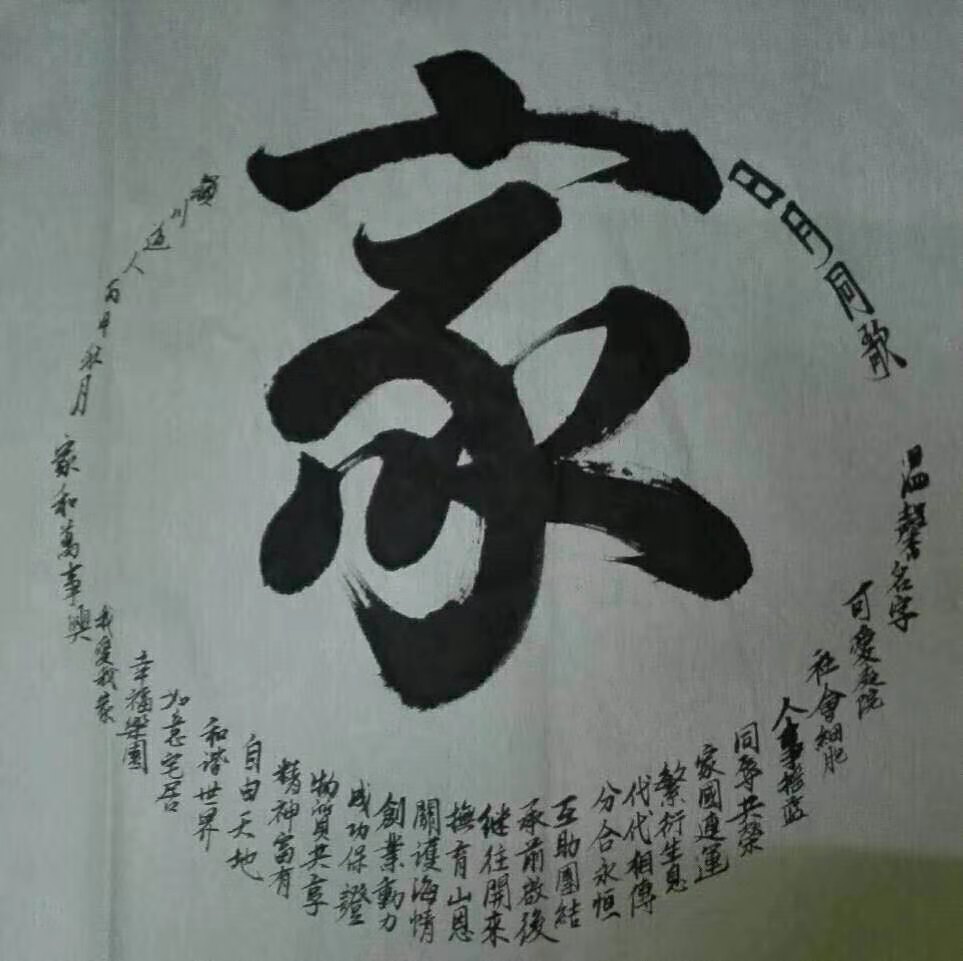 家
日月同歌
温馨名字
可愛庭院
社會細胞
人事搖篮
同辱共榮
家國連運
繁衍生息
代代相傳
分合永恒
互助團結
承前啟後
继往開來
撫育山恩
關護海情
創業動力
成功保證
物質共享
精神富有
自由天地
和谐世界
如意宅居
幸福樂園
我愛我家
家和萬事興
川道人丙申秋月